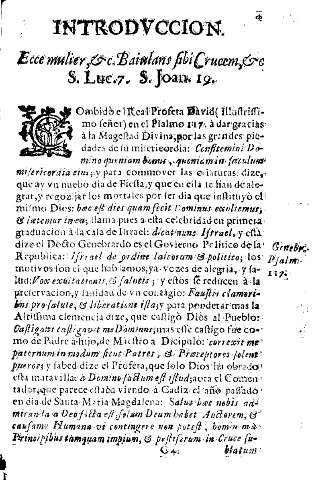 INTRODVCCION.
Ecce mulier, &c. Baiulans sibi Crucem, &c
S. Luc. 7. S. Joan. 19.
COmbidò el Real Profeta David (Illustrissi-
mo señor) en el Psalmo 117. à dar gracias
à la Magestad Divina, por las grandes pie-
dades de su misericordia: Confitemini Do-
mino quoniam bonus, quoniam in sæculum
misericordia eius; y para commover las criaturas: dize,
que ay un nuebo dia de Fiesta, y que en ella se han de ale-
grar, y regozijar los mortales por ser dia que instituyò el
mismo Dios: hæc est dies quam fecit Dominus exultemus,
& lætemur in ea; llama pues a esta celebridad en primera
graduacion à la casa de Israel: dicat nunc Israel, y està
dize el Docto Genebrardo es el Govierno Politico de la
Republica: Israel de ordine laicorum & politico; los
motivos son el que hablamos, ya vozes de alegria, y sa-
lud: Vox exultationis, & salutis; y estos se reducen à la
preservacion, y sanidad de un contagio: Faustis clamori-
bus pro salute, & liberatione ista; y para ponderar mas la
Altissima clemencia dize, que castigò Diòs al Pueblo:
Castigans castigavit me Dominus; mas esse castigo fue co-
mo de Padre a hijo, de Maestro a Dicipulo: correxit me
paternum in modum sicut Patres, & Præceptores solent
pueros; y sabed dize el Profeta, que solo Diòs ha obrado
esta maravilla: à Domino factum est istud; aora el Comen-
tador, que parece estaba viendo à Cadiz el año passado
en dia de Santa Maria Magdalena: Salus hæc nobis ad-
miranda à Deo facta est; solum Deum habet Auctorem, &
causam: Humana vi contingere non potest, hominum
Principibus tamquam impium, & pestiferum in Cruce su-
Genebr.
Psalm.
117.
G 4.
blatum